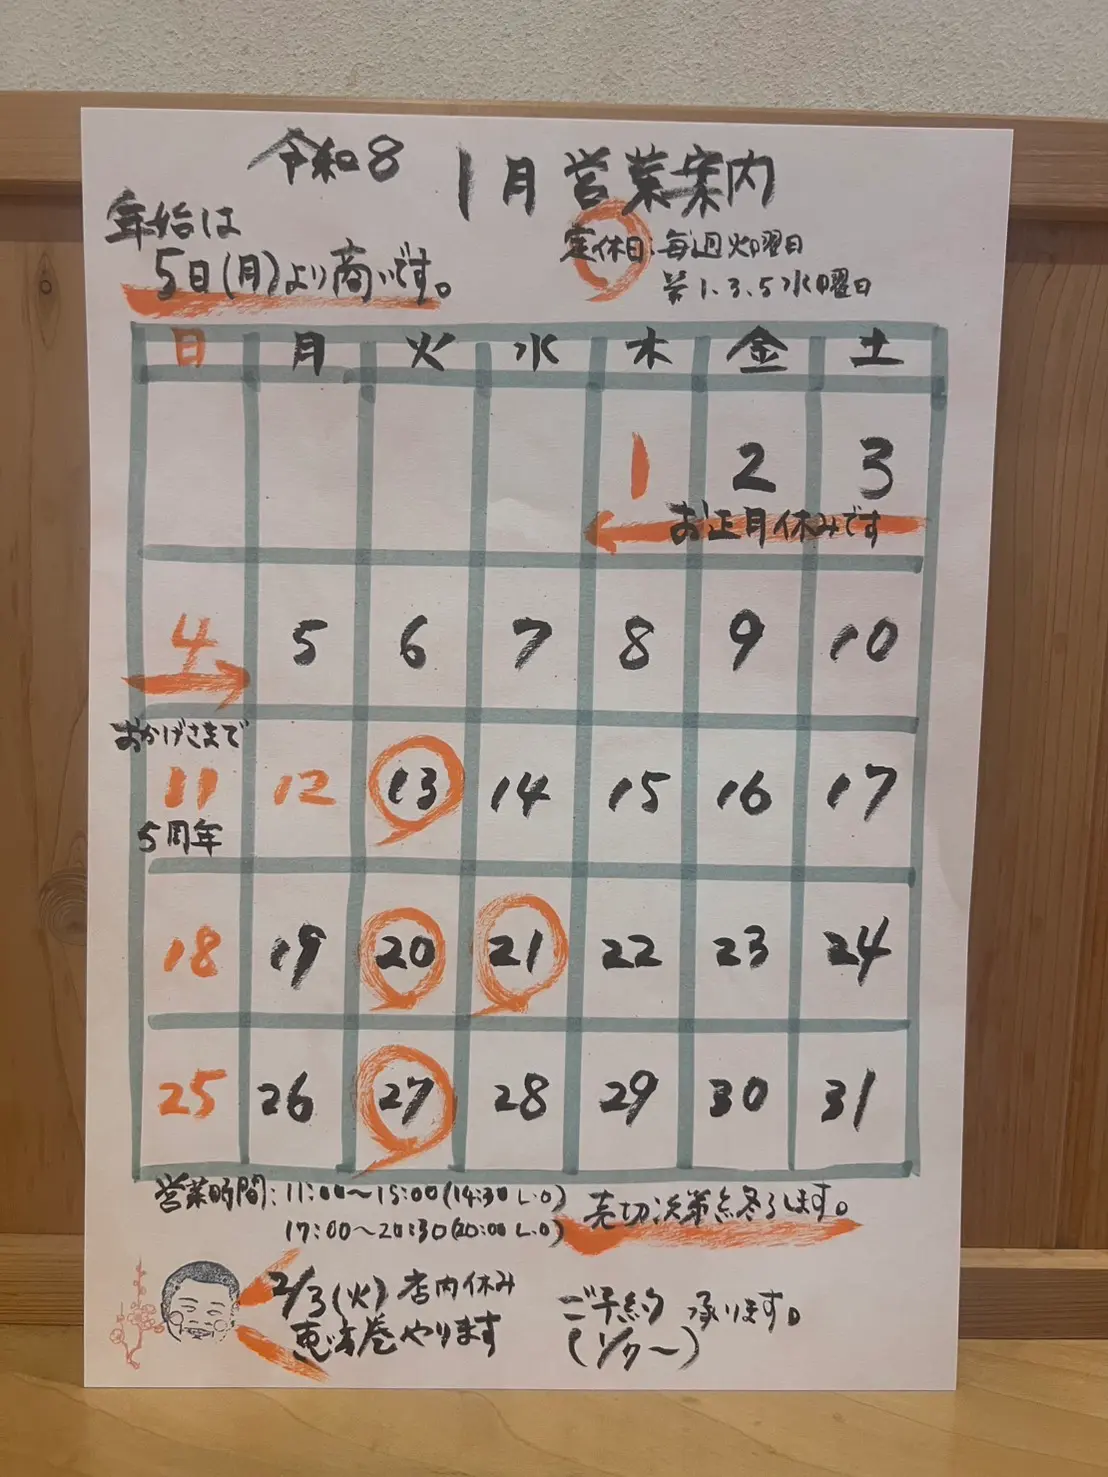 令和8 1月営業案内
年始は
5日(月)より商いです。
定休日:毎週火曜日
第1.3.5水曜日
日 月 火 水 木 金 土
1 2 3
お正月休みです
4 5 6 7 8 9 10
おかげさまで
11 12 13 14 15 16 17
5周年
18 19 20 21 22 23 24
25 26 27 28 29 30 31
営業時間:11:00〜15:00(14:30 L.O)
17:00〜20:30(20:00 L.O)
売切次第終了します。
2/3(火)店内休み
恵方巻やります
ご予約 承ります。
(1/7〜)